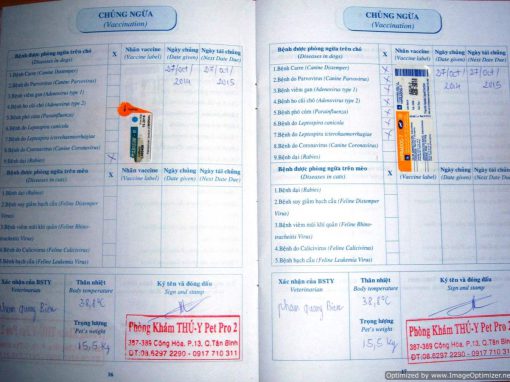 CHỦNG NGỪA
(Vaccination)
Bệnh được phòng ngừa trên chó
(Diseases in dogs)
X
Nhãn vaccine
(Vaccine label)
Ngày chủng
(Date given)
Ngày tái chủng
(Next Date Due)
1.Bệnh Care (Canine Distemper)
2.Bệnh do Parvovirus (Canine Parvovirus)
3.Bệnh viêm gan (Adenovirus type 1)
4.Bệnh ho cũi chó (Adenovirus type 2)
5.Bệnh phó cúm (Parainfluenza)
6.Bệnh do Leptospira canicola
7.Bệnh do Leptospira icterohaemorrhagiae
8.Bệnh do Coronavirus (Canine Coronavirus)
9.Bệnh dại (Rabies)
X
27/oct/
2014
27/oct/
2015
Bệnh được phòng ngừa trên mèo
(Diseases in cats)
X
Nhãn vaccine
(Vaccine label)
Ngày chủng
(Date given)
Ngày tái chủng
(Next Date Due)
1.Bệnh dại (Rabies)
2.Bệnh suy giảm bạch cầu (Feline Distemper
Virus)
3.Bệnh viêm mũi khí quản (Feline Rhino-
tracheitis Virus)
4.Bệnh do Calicivirus (Feline Calicivirus)
5.Bệnh bạch cầu (Feline Leukemia Virus)
Xác nhận của BSTY
Veterinarian
Thân nhiệt
Body temperature
38,8°C
Ký tên và đóng dấu
Sign and stamp
Phạm Quang Biên
Trọng lượng
Pet's weight
15,5 Kg
Phòng Khám THÚ-Y Pet Pro 2
387-389 Cộng Hòa, P.13, Q.Tân Bình
ĐT:08.6297 2290 - 0917 710 311
16
CHỦNG NGỪA
(Vaccination)
Bệnh được phòng ngừa trên chó
(Diseases in dogs)
X
Nhãn vaccine
(Vaccine label)
Ngày chủng
(Date given)
Ngày tái chủng
(Next Date Due)
1.Bệnh Care (Canine Distemper)
2.Bệnh do Parvovirus (Canine Parvovirus)
3.Bệnh viêm gan (Adenovirus type 1)
4.Bệnh ho cũi chó (Adenovirus type 2)
5.Bệnh phó cúm (Parainfluenza)
6.Bệnh do Leptospira canicola
7.Bệnh do Leptospira icterohaemorrhagiae
8.Bệnh do Coronavirus (Canine Coronavirus)
9.Bệnh dại (Rabies)
27/oct/
2014
27/oct/
2015
Bệnh được phòng ngừa trên mèo
(Diseases in cats)
X
Nhãn vaccine
(Vaccine label)
Ngày chủng
(Date given)
Ngày tái chủng
(Next Date Due)
1.Bệnh dại (Rabies)
2.Bệnh suy giảm bạch cầu (Feline Distemper
Virus)
3.Bệnh viêm mũi khí quản (Feline Rhino-
tracheitis Virus)
4.Bệnh do Calicivirus (Feline Calicivirus)
5.Bệnh bạch cầu (Feline Leukemia Virus)
Xác nhận của BSTY
Veterinarian
Thân nhiệt
Body temperature
38,8°C
Ký tên và đóng dấu
Sign and stamp
Phạm Quang Biên
Trọng lượng
Pet's weight
15,5 Kg
Phòng Khám THÚ-Y Pet Pro 2
387-389 Cộng Hòa, P.13, Q.Tân Bình
ĐT:08.6297 2290 - 0917 710 311
Optimized by www.ImageOptimizer.net